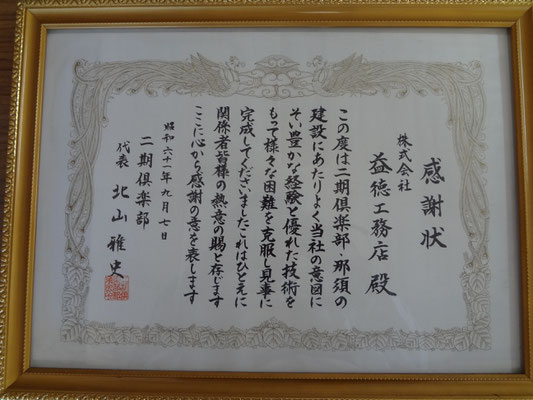 感謝状
株式会社
益徳工務店 殿
この度は二期倶楽部・那須の
建設にあたりよく当社の意図に
そい豊かな経験と優れた技術を
もって様々な困難を克服し見事に
完成してくださいましたこれはひとえに
関係者皆様の熱意の賜と存じます
ここに心から感謝の意を表します
昭和六十一年九月七日
二期倶楽部
代表 北山雅史